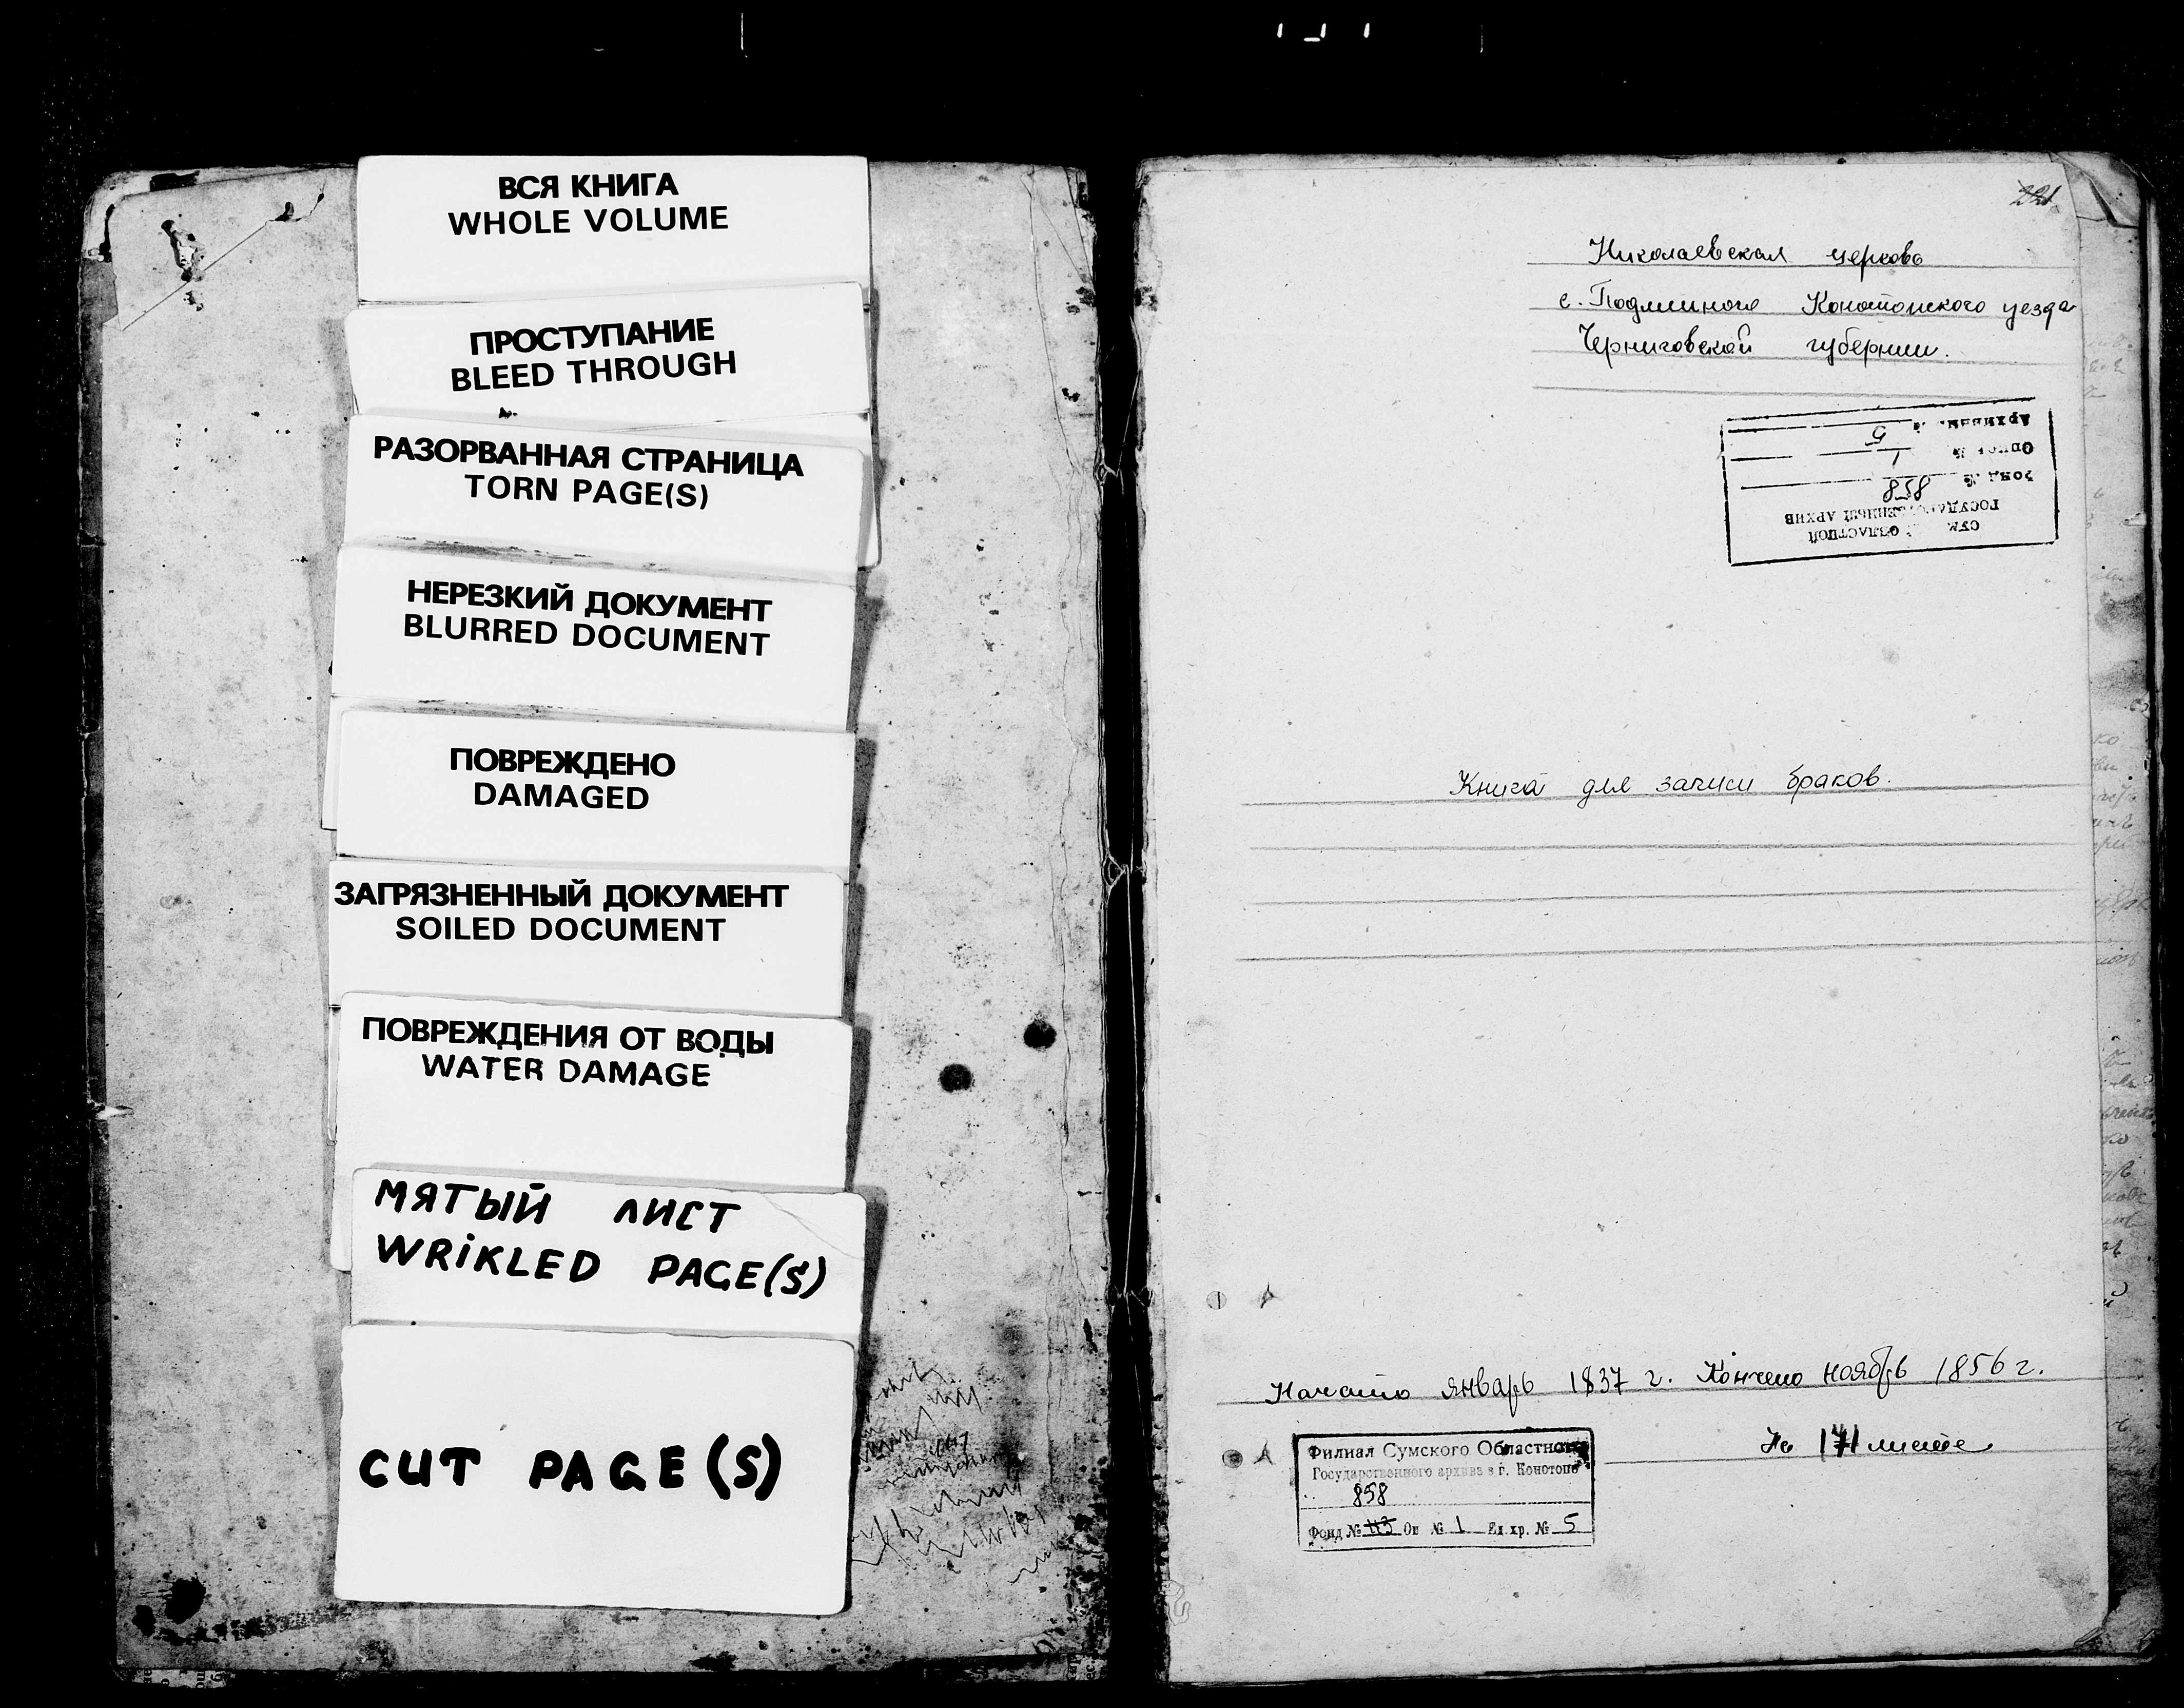 ВСЯ КНИГА
WHOLE VOLUME
ПРОСТУПАНИЕ
BLEED THROUGH
РАЗОРВАННАЯ СТРАНИЦА
TORN PAGE(S)
НЕРЕЗКИЙ ДОКУМЕНТ
BLURRED DOCUMENT
ПОВРЕЖДЕНО
DAMAGED
ЗАГРЯЗНЕННЫЙ ДОКУМЕНТ
SOILED DOCUMENT
ПОВРЕЖДЕНИЯ ОТ ВОДЫ
WATER DAMAGE
МЯТЫЙ ЛИСТ
WRIKLED PAGE(S)
CUT PAGE(S)
Николаевская церковь
с. Подлипного Конотопского уезда
Черниговской губернии.
ОБЛАСТНОЙ
ГОСУДАРСТВЕННЫЙ АРХИВ
Фонд № 858
Опись № 1
5
Книга для записи браков.
Начато январь 1837 г. Кончено ноябрь 1856 г.
На 171 листе
Филиал Сумского Областного
Государственного архива в г. Конотопе
858
Фонд № 113 Оп № 1 Ед. хр. № 5